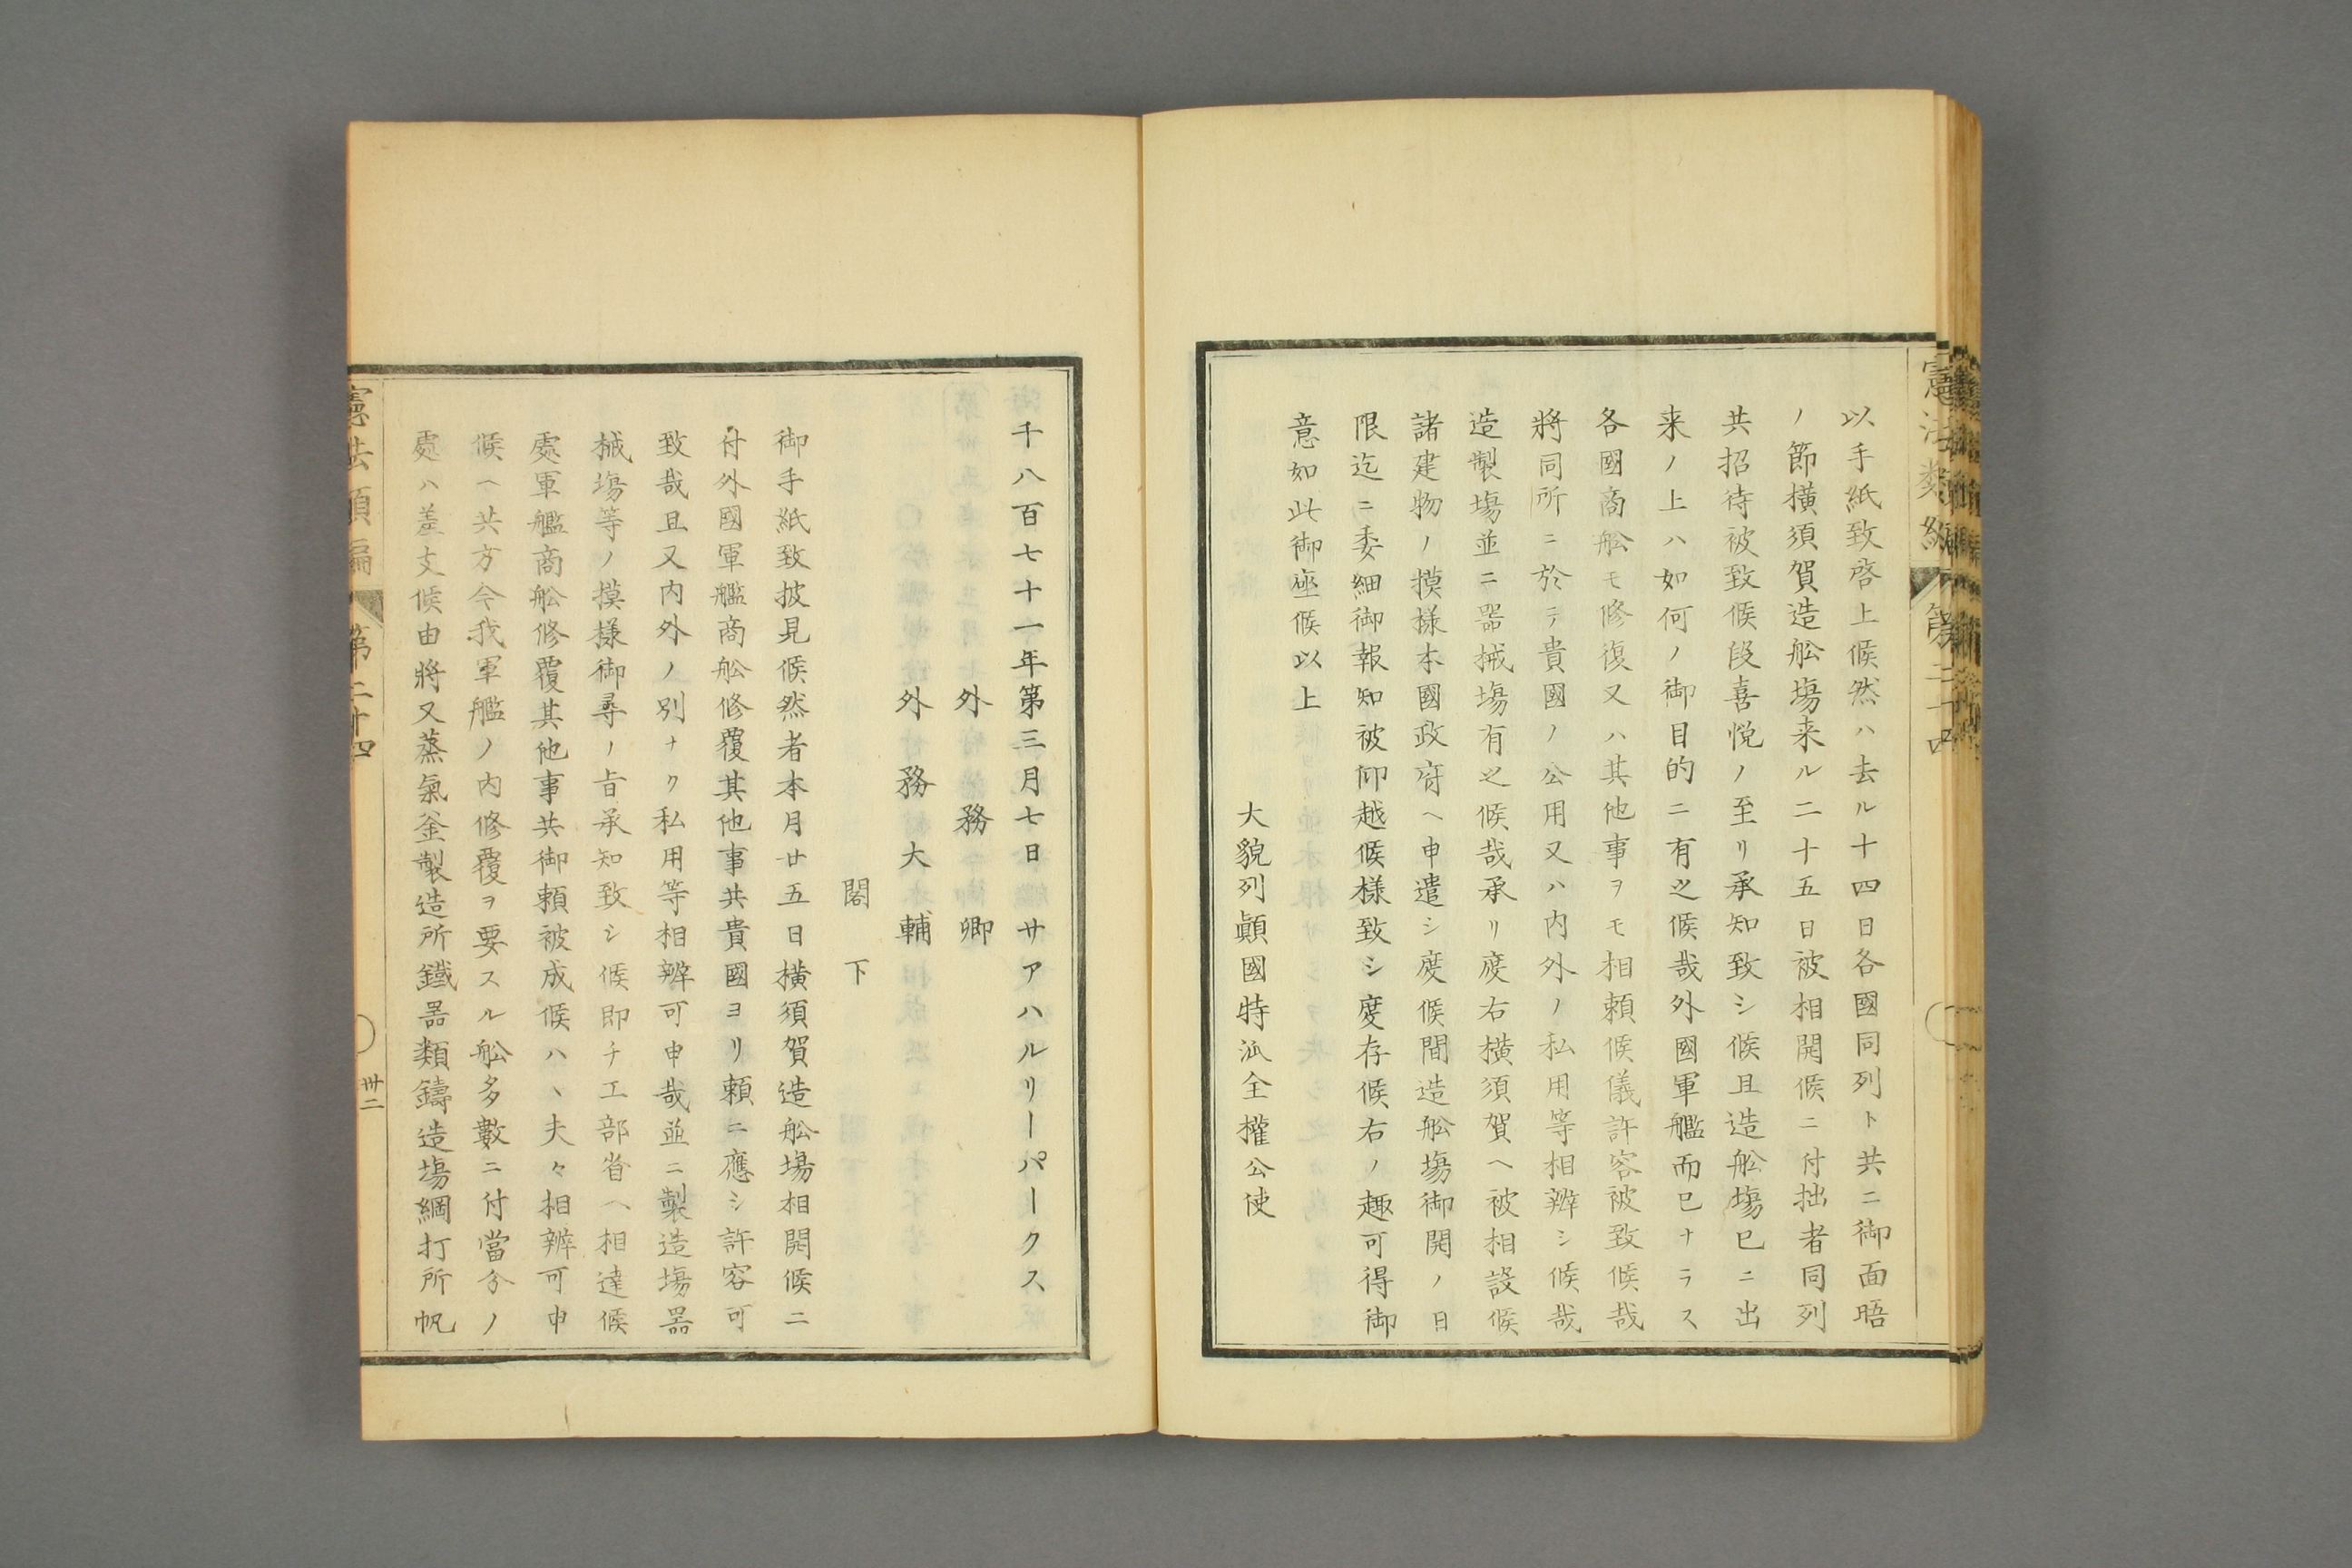 憲法類編 第二十四
以手紙致啓上候然ハ去ル十四日各國同列ト共ニ御面晤
ノ節横須賀造舩塲来ル二十五日被相開候ニ付拙者同列
共招待被致候段喜悦ノ至リ承知致シ候且造舩塲巳ニ出
来ノ上ハ如何ノ御目的ニ有之候哉外國軍艦而巳ナラス
各國商舩モ修復又ハ其他事ヲモ相頼候儀許容被致候哉
將同所ニ於テ貴國ノ公用又ハ内外ノ私用等相辨シ候哉
造製塲並ニ器械塲有之候哉承リ度右横須賀ヘ被相設候
諸建物ノ摸様本國政府ヘ申遣シ度候間造舩塲御開ノ日
限迄ニ委細御報知被仰越候様致シ度存候右ノ趣可得御
意如此御座候以上
大貌列顚國特派全權公使
千八百七十一年第三月七日サアハルリーパークス
外務卿
外務大輔
閣下
御手紙致披見候然者本月廿五日横須賀造舩塲相開候ニ
付外國軍艦商舩修覆其他事共貴國ヨリ頼ニ應シ許容可
致哉且又内外ノ別ナク私用等相辨可申哉並ニ製造塲器
械塲等ノ摸様御尋ノ旨承知致シ候即チ工部省ヘ相達候
處軍艦商舩修覆其他事共御頼被成候ハヽ夫々相辨可申
候ヘ共方今我軍艦ノ内修覆ヲ要スル舩多數ニ付當分ノ
處ハ差支候由將又蒸氣釜製造所鐵器類鑄造塲綱打所帆
憲法類編 第二十四 卅二